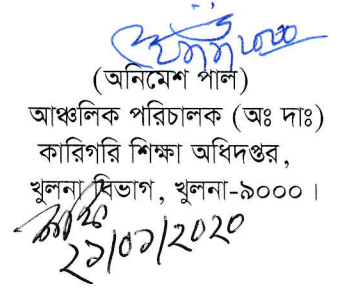 (অনিমেশ পাল)
আঞ্চলিক পরিচালক (অঃ দাঃ)
কারিগরি শিক্ষা অধিদপ্তর,
খুলনা বিভাগ, খুলনা-৯০০০।
২১/০১/২০২০